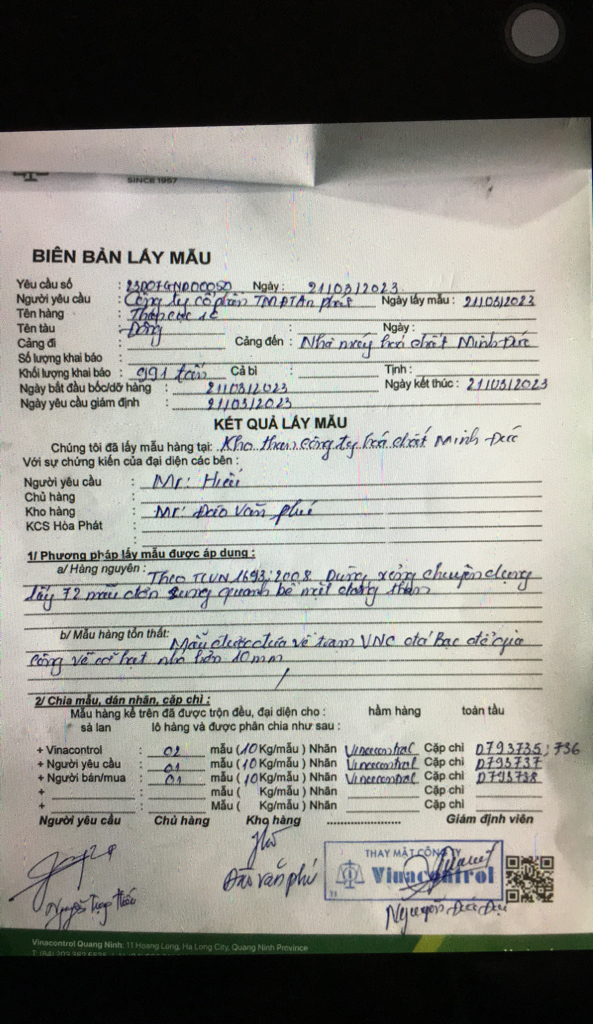 SINCE 1957
BIÊN BẢN LẤY MẪU
Yêu cầu số : Ngày: 21/03/2023
Người yêu cầu : Công ty cổ phần TMPT An phát Ngày lấy mẫu: 21/03/2023
Tên hàng :
Tên tàu : Đống Ngày:
Cảng đi : Cảng đến : Nhà máy hoá chất Minh Đức
Số lượng khai báo :
Khối lượng khai báo : 991 tấn Cả bì : Tịnh :
Ngày bắt đầu bốc/dỡ hàng : 21/03/2023 Ngày kết thúc : 21/03/2023
Ngày yêu cầu giám định : 21/03/2023
KẾT QUẢ LẤY MẪU
Chúng tôi đã lấy mẫu hàng tại: Kho than công ty hoá chất Minh Đức
Với sự chứng kiến của đại diện các bên :
Người yêu cầu : Mr: Hiếu
Chủ hàng :
Kho hàng : Mr: Đào Văn Phú
KCS Hòa Phát :
1/ Phương pháp lấy mẫu được áp dụng :
a/ Hàng nguyên : Theo TCVN 1693:2008 Dùng xẻng chuyên dụng
lấy 72 mẫu đơn xung quanh bề mặt đống than
b/ Mẫu hàng tổn thất: Mẫu được đưa về trạm VNC để gia
công về cỡ hạt nhỏ hơn 10mm
2/ Chia mẫu, dán nhãn, cặp chì :
Mẫu hàng kể trên đã được trộn đều, đại diện cho : hầm hàng toàn tàu
sà lan lô hàng và được phân chia như sau :
+ Vinacontrol : 02 mẫu (10 Kg/mẫu ) Nhãn Vinacontrol Cặp chì 0793735; 736
+ Người yêu cầu : 01 mẫu (10 Kg/mẫu ) Nhãn Vinacontrol Cặp chì 0793737
+ Người bán/mua : 01 mẫu (10 Kg/mẫu ) Nhãn Vinacontrol Cặp chì 0793738
+ : mẫu ( Kg/mẫu ) Nhãn Cặp chì
+ : Mẫu ( Kg/mẫu ) Nhãn Cặp chì
Người yêu cầu Chủ hàng Kho hàng Giám định viên
THAY MẶT CÔNG TY
Vinacontrol
Đào văn phú
Nguyễn Đức Đại
Vinacontrol Quang Ninh: 11 Hoang Long, Ha Long City, Quang Ninh Province